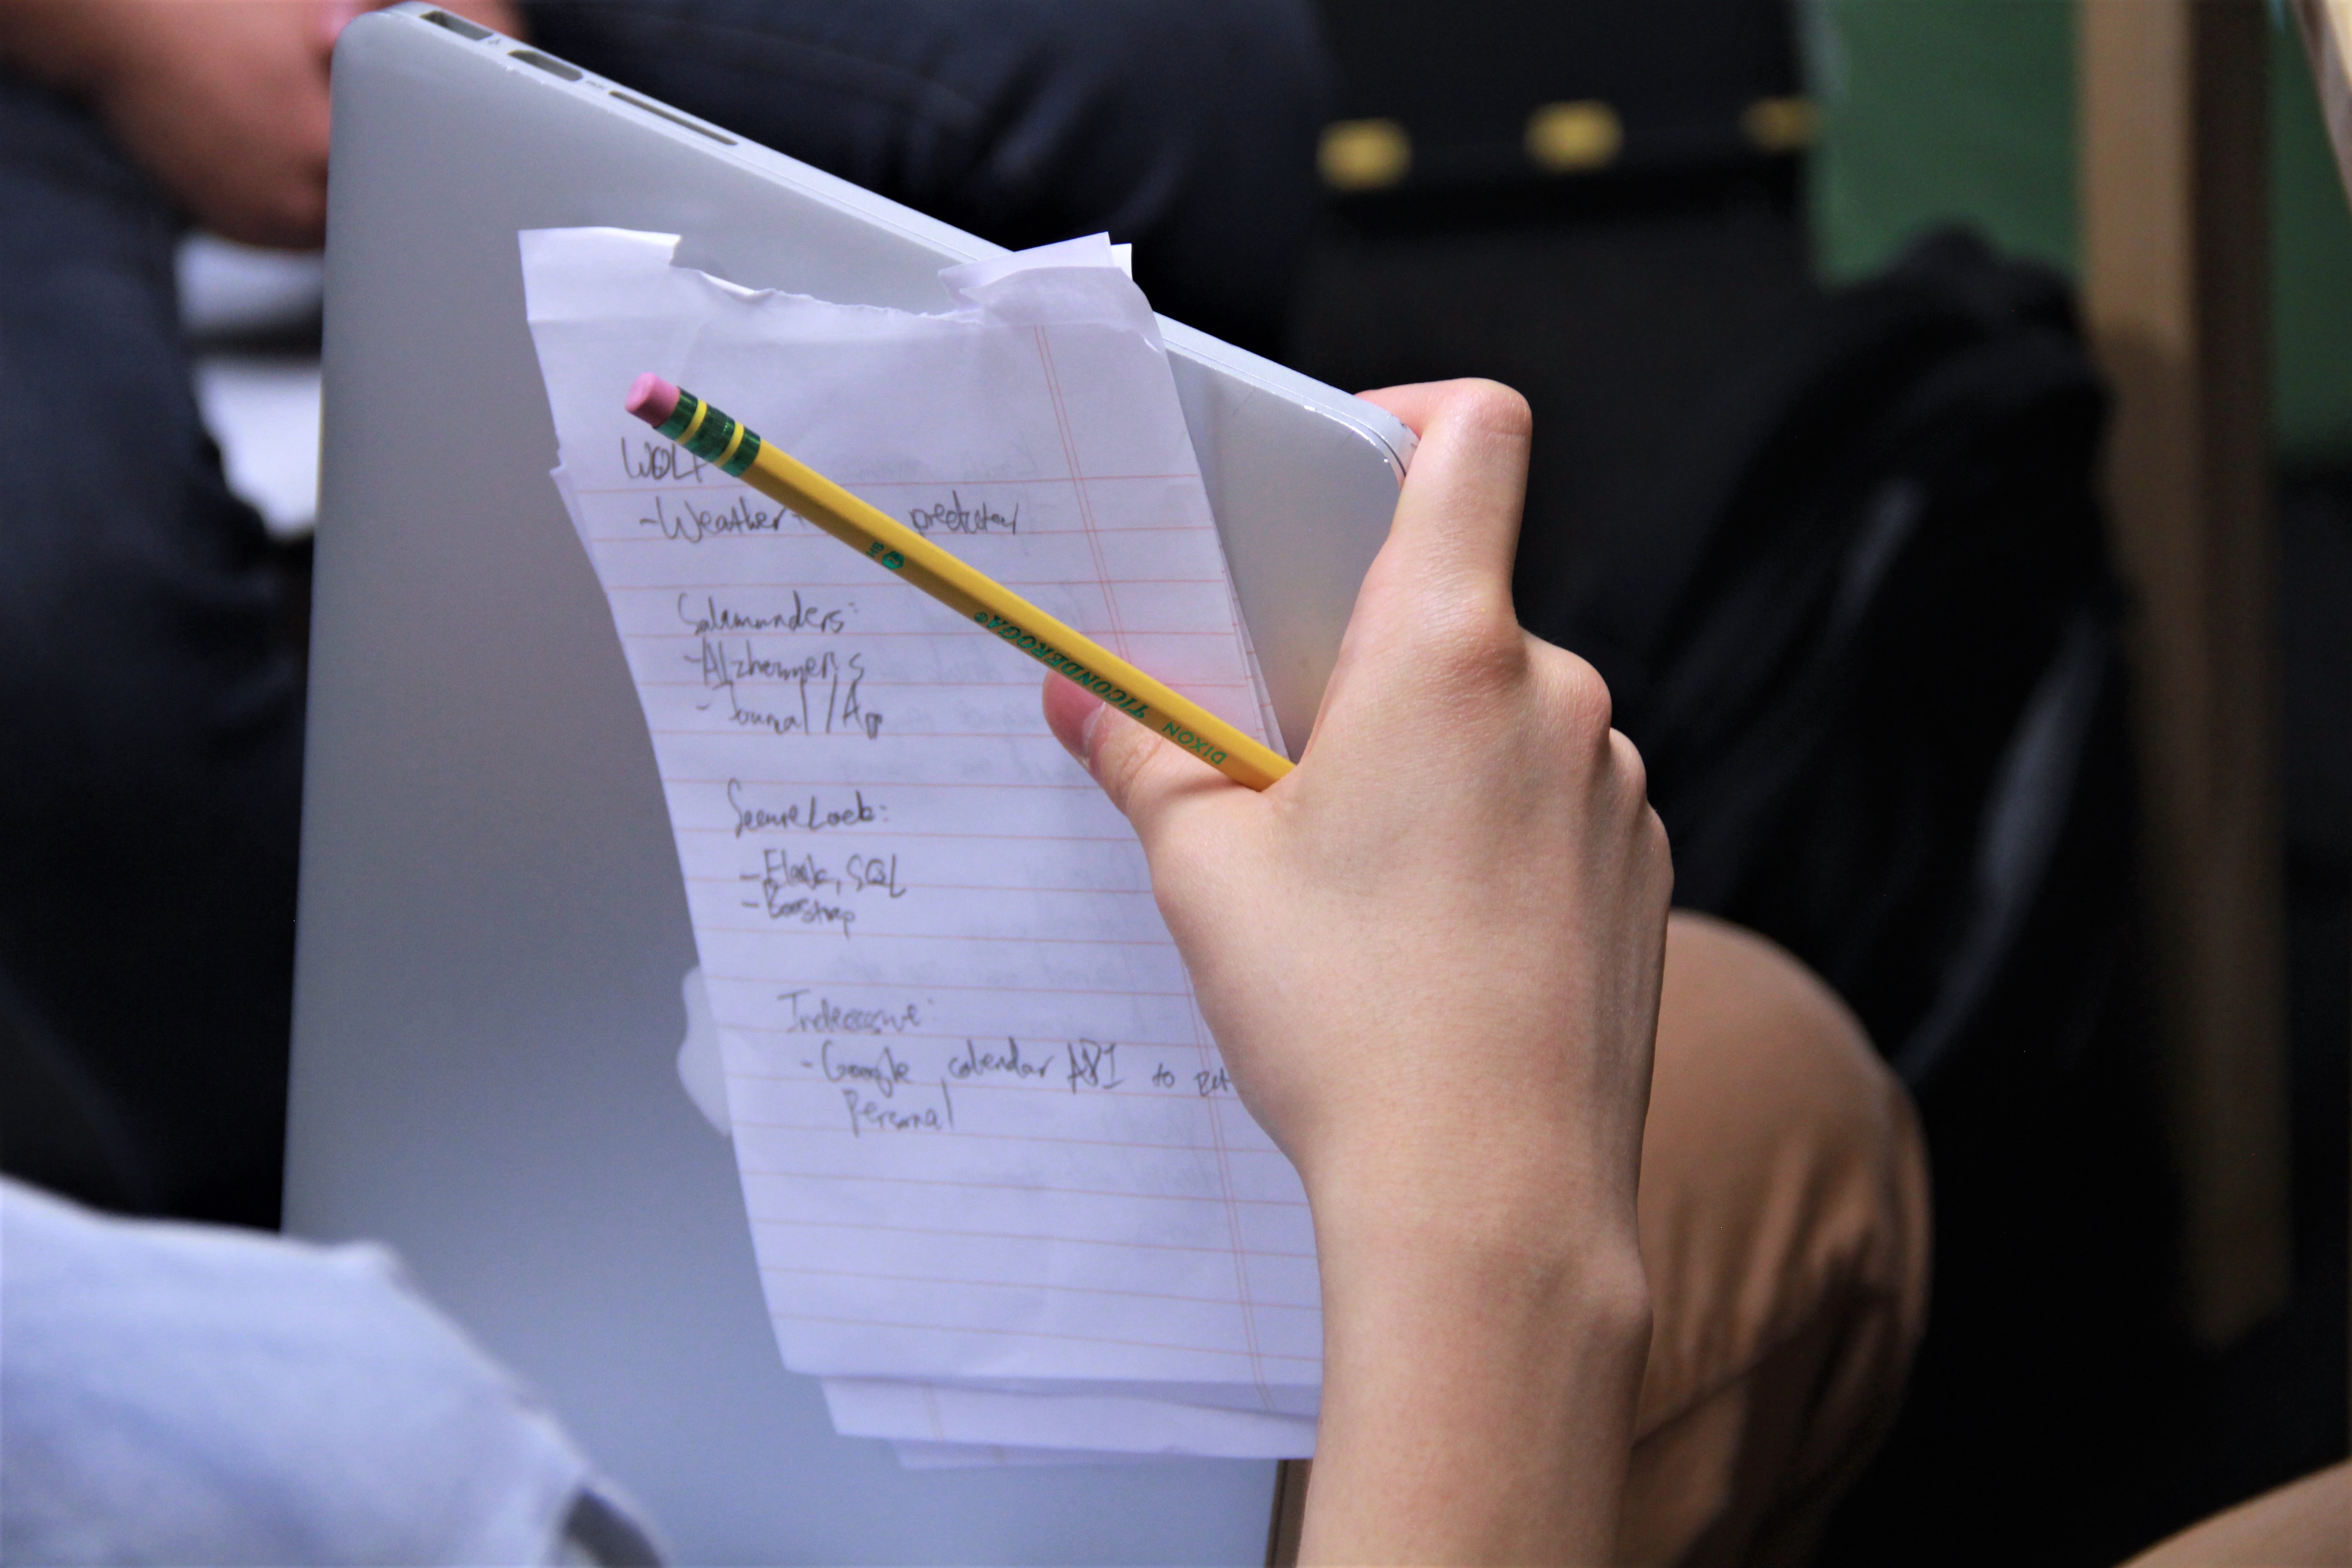 WOLF
-Weather predictor
Salamanders:
-Alzheimer's
- Journal/App
SecureLock:
-Flask, SQL
-Boostrap
:
-Google calendar API to get
Personal
DIXON TICONDEROGA®